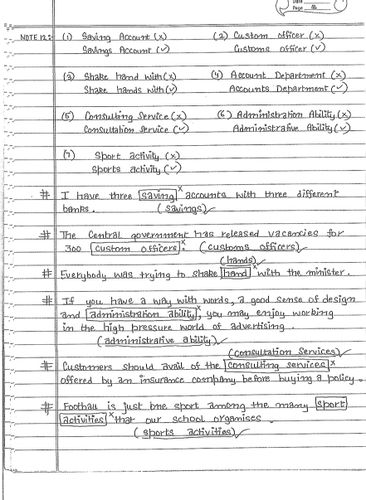 Date
Page
NOTE 12: (1) Saving Account (x) (2) Custom officer (x)
Savings Account (✓) Customs officer (✓)
(3) Shake hand with (x) (4) Account Department (x)
Shake hands with (✓) Accounts Department (✓)
(5) Consulting Service (x) (6) Administration Ability (x)
Consultation Service (✓) Administrative Ability (✓)
(7) Sport activity (x)
Sports activity (✓)
# I have three saving x accounts with three different
banks. (savings) ✓
# The Central government has released vacancies for
300 custom officers x. (customs officers) ✓
(hands) ✓
# Everybody was trying to shake hand x with the minister.
# If you have a way with words, a good sense of design
and administration ability x, you may enjoy working
in the high pressure world of advertising.
(administrative ability) ✓
(consultation services) ✓
# Customers should avail of the consulting services x
offered by an insurance company before buying a policy.
# Football is just one sport among the many sport
activities x that our school organises.
(sports activities) ✓